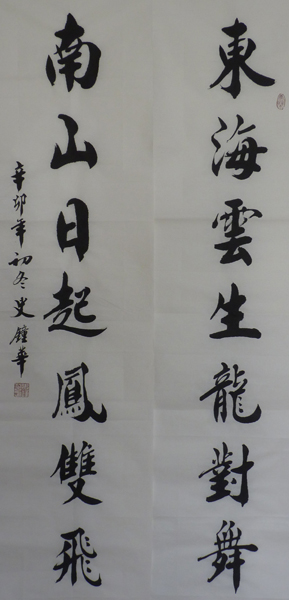 東海雲生龍對舞
南山日起鳳雙飛
辛卯年初冬史鐘華